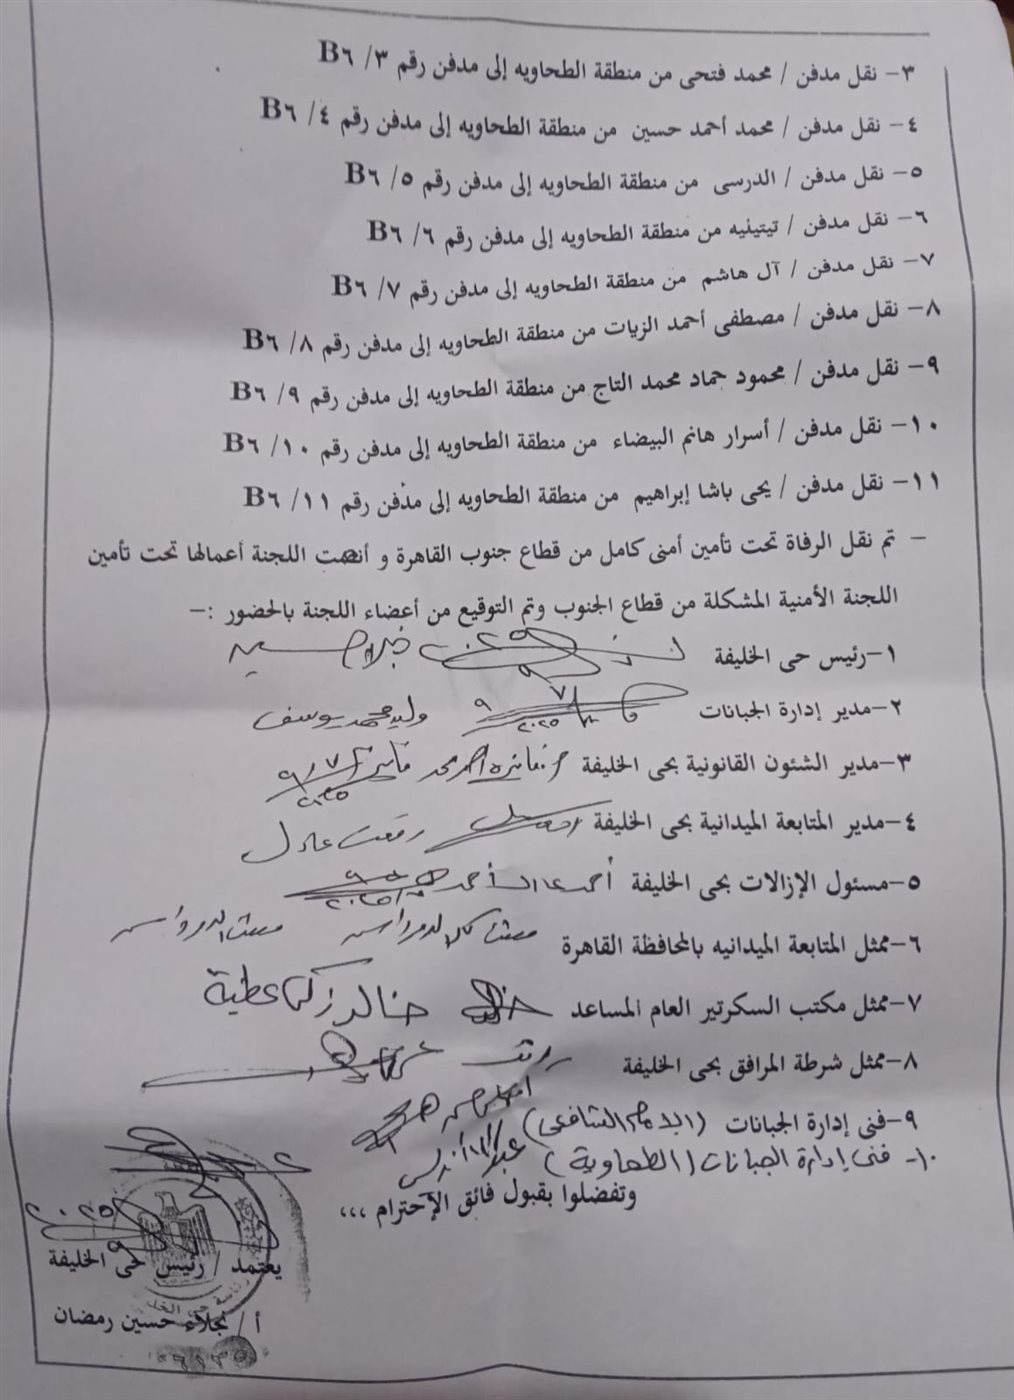 ٣- نقل مدفن / محمد فتحى من منطقة الطحاويه إلى مدفن رقم ٣/ B٦
٤- نقل مدفن / محمد أحمد حسين من منطقة الطحاويه إلى مدفن رقم ٤/ B٦
٥- نقل مدفن / الدرسى من منطقة الطحاويه إلى مدفن رقم ٥/ B٦
٦- نقل مدفن / تيتينيه من منطقة الطحاويه إلى مدفن رقم ٦/ B٦
٧- نقل مدفن / آل هاشم من منطقة الطحاويه إلى مدفن رقم ٧/ B٦
٨- نقل مدفن / مصطفى أحمد الزيات من منطقة الطحاويه إلى مدفن رقم ٨/ B٦
٩- نقل مدفن / محمود حماد محمد التاج من منطقة الطحاويه إلى مدفن رقم ٩/ B٦
١٠- نقل مدفن / أسرار هانم البيضاء من منطقة الطحاويه إلى مدفن رقم ١٠/ B٦
١١- نقل مدفن / يحى باشا إبراهيم من منطقة الطحاويه إلى مدفن رقم ١١/ B٦
- تم نقل الرفاة تحت تأمين أمنى كامل من قطاع جنوب القاهرة و أنهت اللجنة أعمالها تحت تأمين
اللجنة الأمنية المشكلة من قطاع الجنوب وتم التوقيع من أعضاء اللجنة بالحضور :-
١-رئيس حى الخليفة
٢-مدير إدارة الجبانات وليد محمد يوسف
٣-مدير الشئون القانونية بحى الخليفة
٤-مدير المتابعة الميدانية بحى الخليفة رفعت عادل
٥-مسئول الإزالات بحى الخليفة
٦-ممثل المتابعة الميدانيه بالمحافظة القاهرة
٧-ممثل مكتب السكرتير العام المساعد خالد زكى عطية
٨-ممثل شرطة المرافق بحى الخليفة
٩-فنى إدارة الجبانات (الامام الشافعى)
١٠- فنى إدارة الجبانات (الطحاوية)
وتفضلوا بقبول فائق الإحترام ،،،
يعتمد / رئيس حى الخليفة
أ / نجلاء حسين رمضان